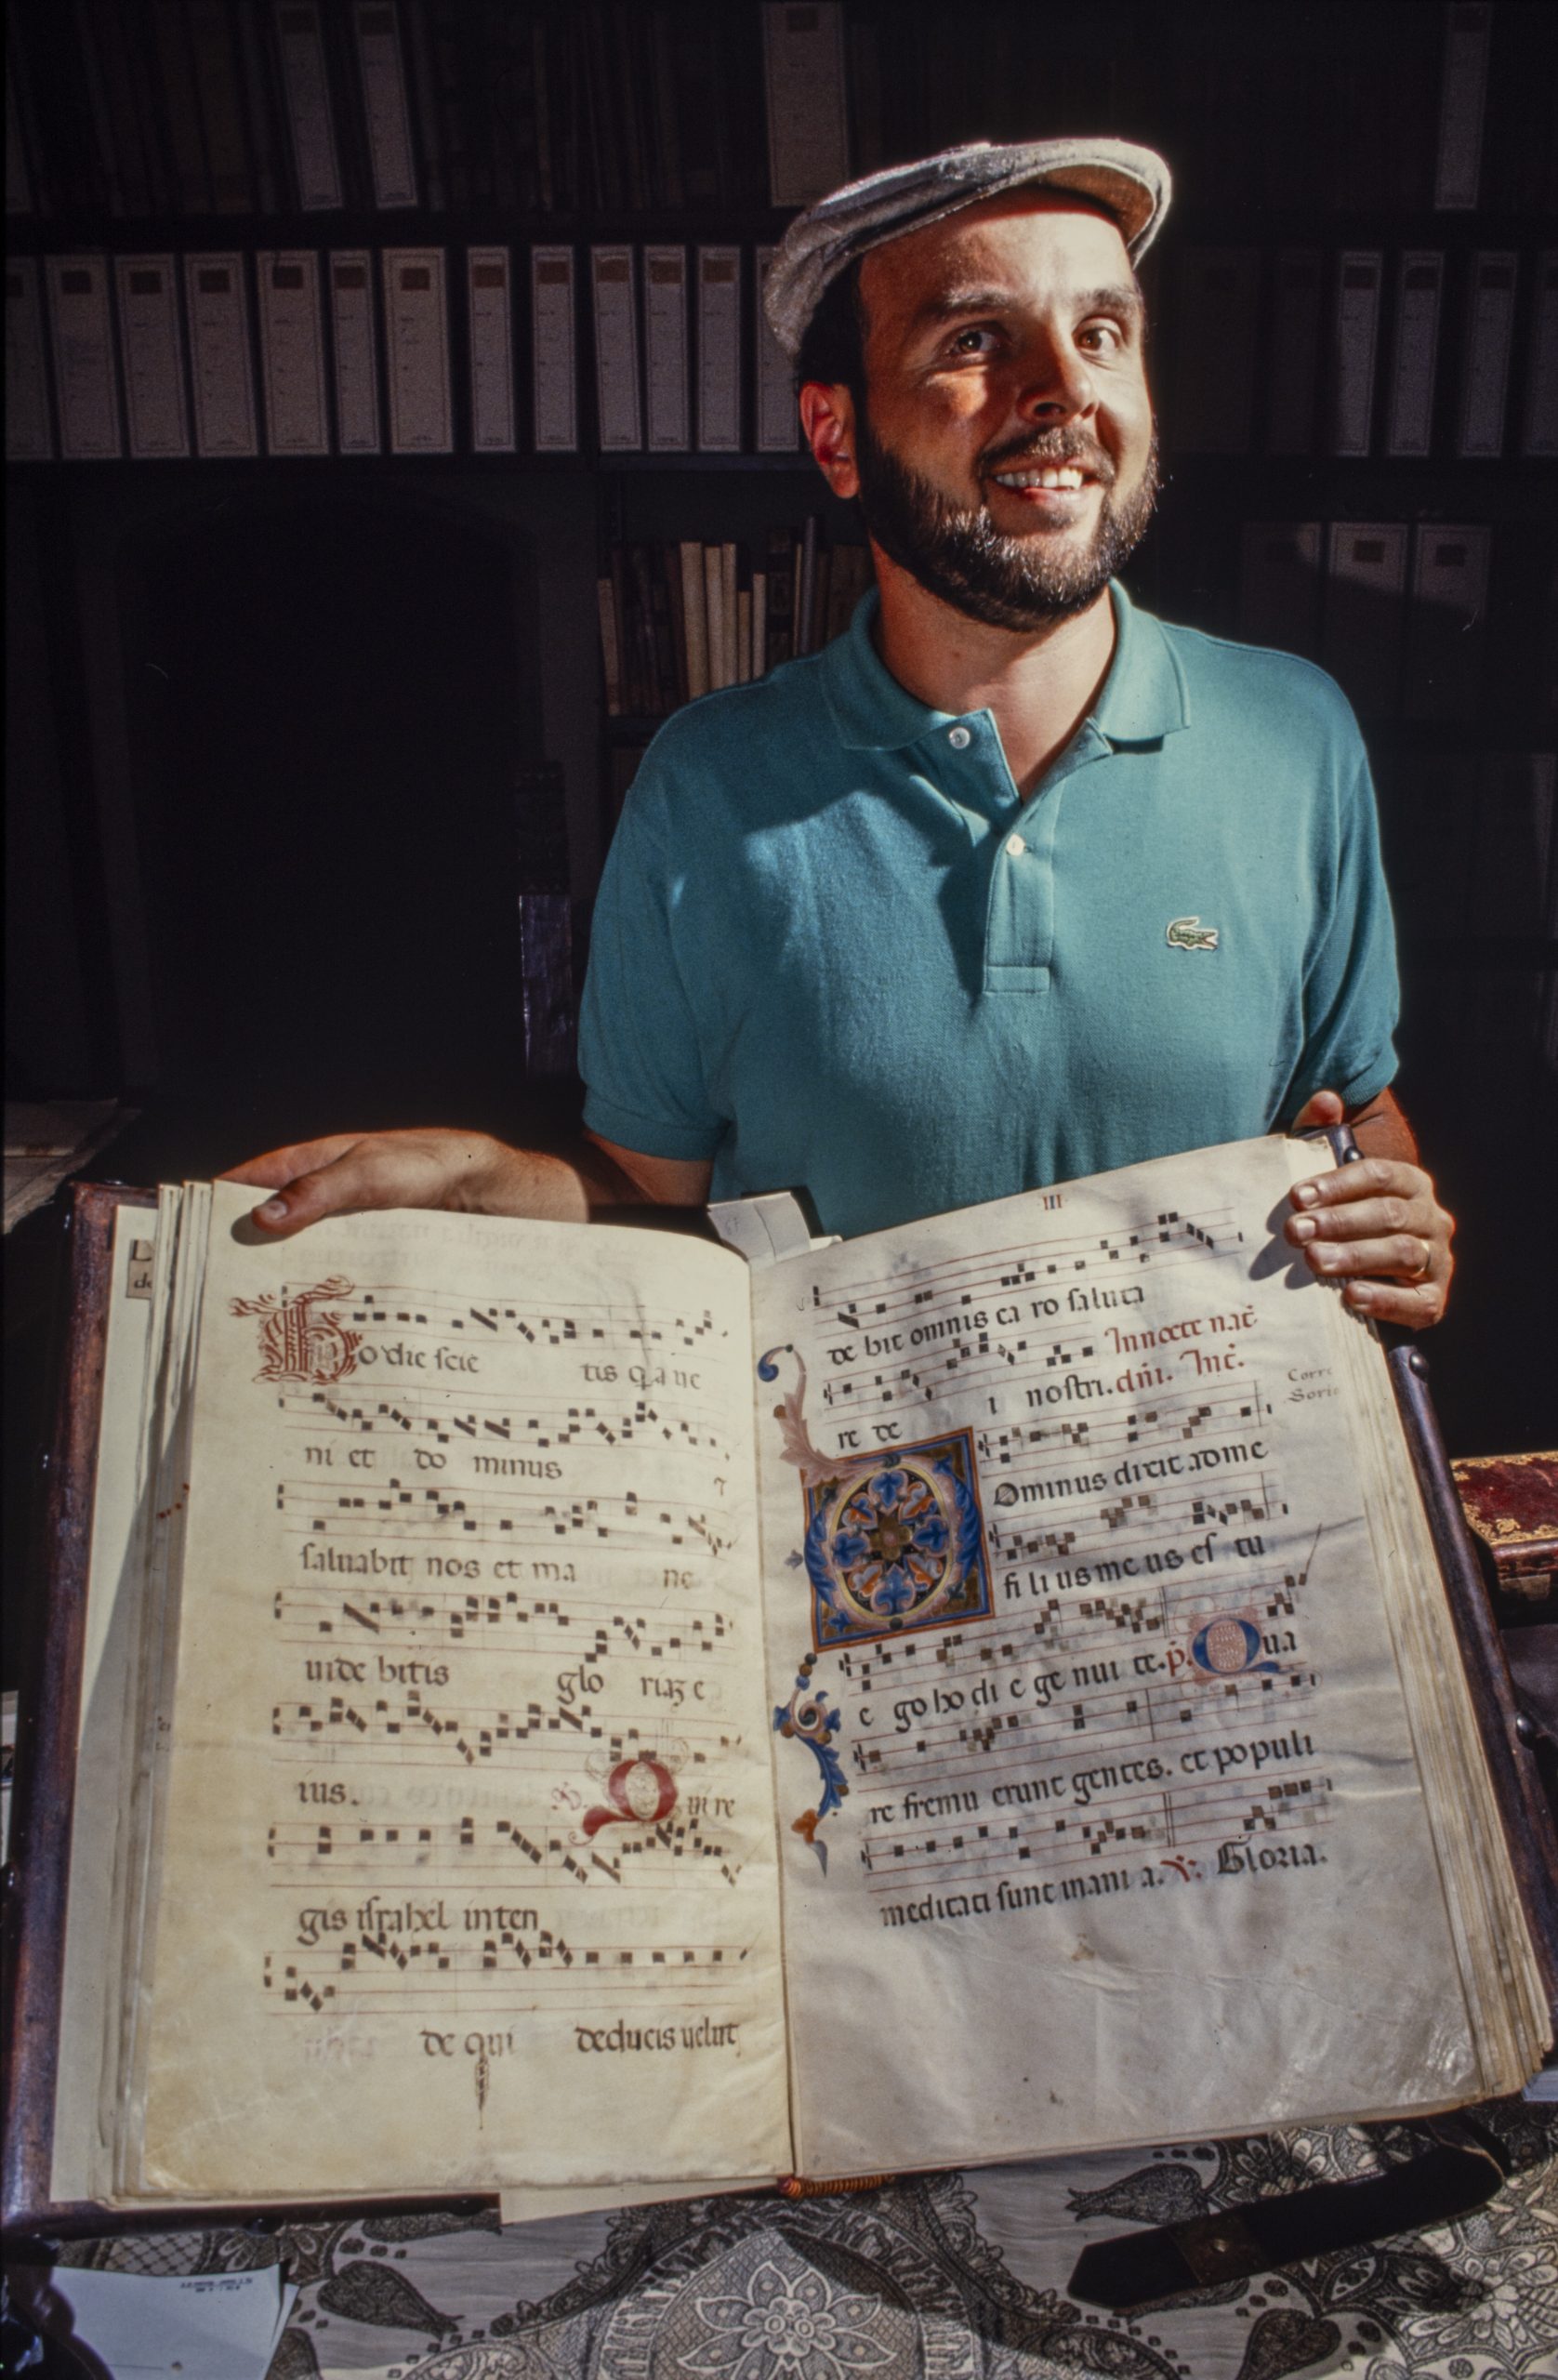 Hodie scie tis q̇a ue
ni et do minus
saluabit nos et ma ne
uide bitis glo riaʒ e
ius. Qui re
gis israhel inten
de qui deducis uelut
III
de bit omnis ca ro saluta
re de i nostri. In nocte nat̄
dn̄i. Int̄.
Dominus dixit ad me
fi li us me us es tu
e go ho di e ge nui te. p̄. Qua
re fremu erunt gentes. et populi
meditati sunt inani a. V̄. Gloria.